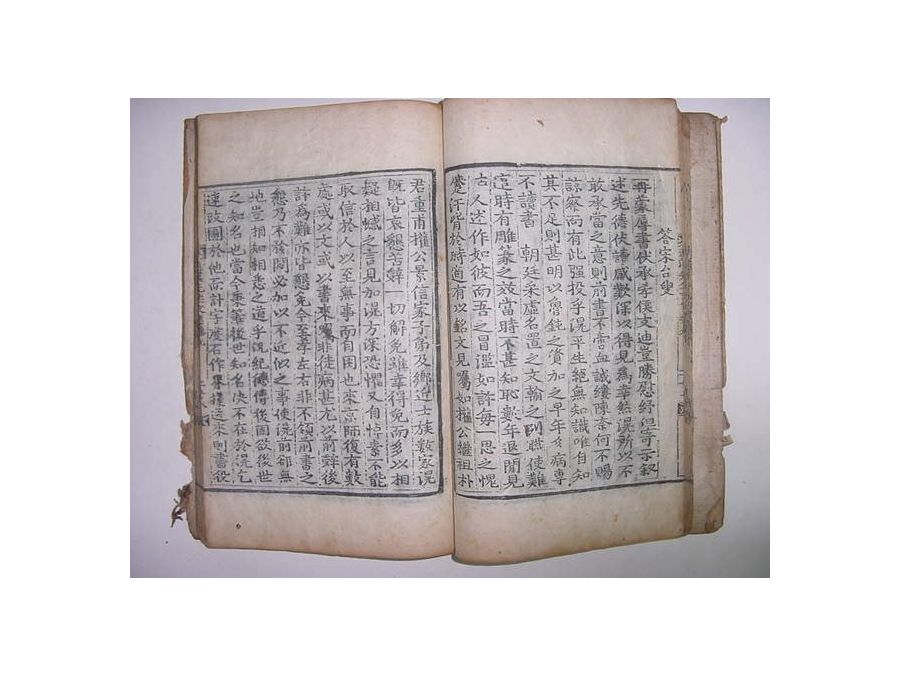 答宋台叟
再蒙辱書伏承
侯支迪豈勝慰紓
示叙
述先德伏諦感歎深以得見爲幸然滉所以不
敢承當之意則前書不啻血誠縷陳奈何不賜
諒察尚有此強投乎滉平生絶無知識唯自知
其不足則甚明以魯鈍之質加之早年
病專
不讀書 朝廷采虛名置之文翰之列職使難
這時有雕篆之效當時不甚知恥數年退閒見
古人述作如彼而吾之冒濫如許每一思之愧
汗背於時適有以銘文見囑如權公繼祖朴
君重甫權公景信家子弟及鄉近士族數家滉
旣皆哀懇苦辭一切解免雖幸得免而多以相
疑相
之言見加滉方深恐懼又自悼素不能
取信於人以至無事而自困也來京師復有數
處或以文或以書來
非徒病甚尤以前辭後
許爲難亦皆懇免今至孝左右非不領前書之
懇乃不於聞必加以不近似之事使滉前却無
地豈相知相悉之道乎況紀德傳後固欲後世
之知名也當今秉筆後世知名決不在於滉乞
速改圖於他高計字
石作
權
來則書役